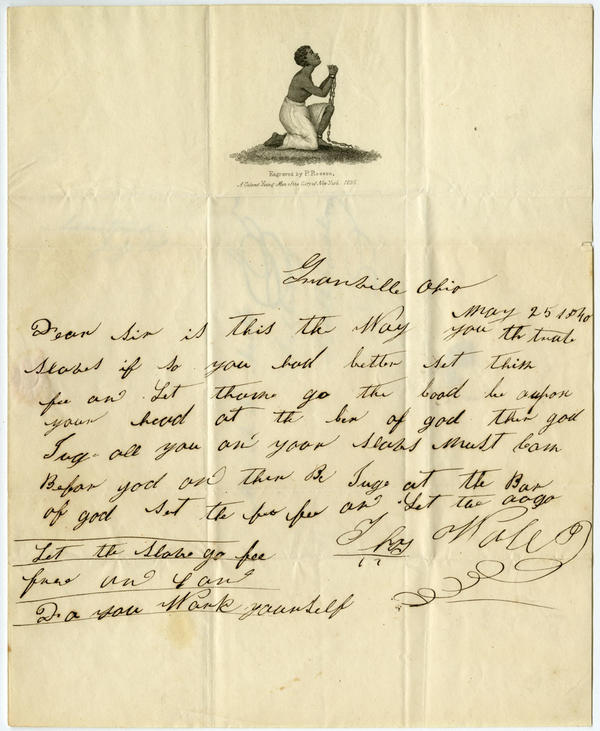 Engraved by P. Reason,
A Colored Young Man of the City of New York 1835
Granville Ohio
May 25 1840
Dear Sir is this the Way you th trate
Slaves if so you bad better set thim
fee an Let thame go the blood be aupon
your head at the ber of god then god
Juge all you an your Slavs Must Cam
Befor god an then Be Juge at the Bar
of god Set the fee an Let the go
Thos Wales
Let the Slave go fee
free an Can
Do you Work yourself